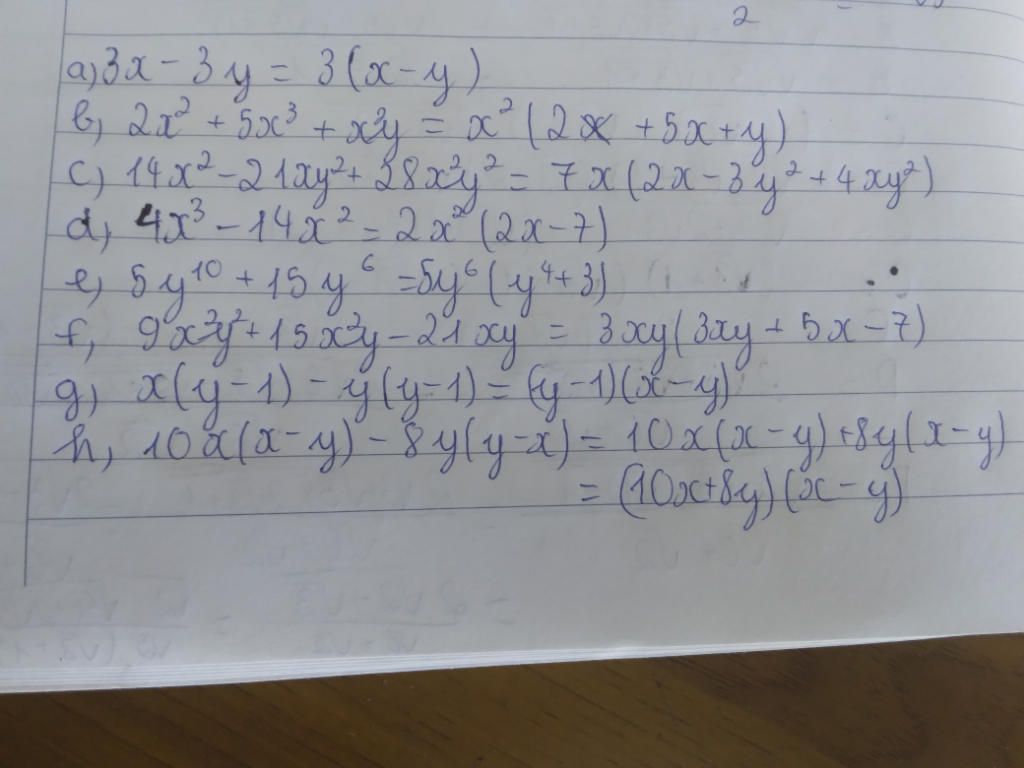 2
a) 3x - 3y = 3(x-y)
b, 2x² + 5x³ + x²y = x² (2x + 5x + y)
c) 14x² - 21xy² + 28x²y² = 7x(2x - 3y² + 4xy²)
d, 4x³ - 14x² = 2x² (2x - 7)
e, 5y¹⁰ + 15y⁶ = 5y⁶ (y⁴ + 3)
f, 9x²y² + 15x²y - 21xy = 3xy(3xy + 5x - 7)
g) x(y-1) - y(y-1) = (y-1)(x-y)
h, 10x(x-y) - 8y(y-x) = 10x(x-y) + 8y(x-y)
= (10x+8y)(x-y)